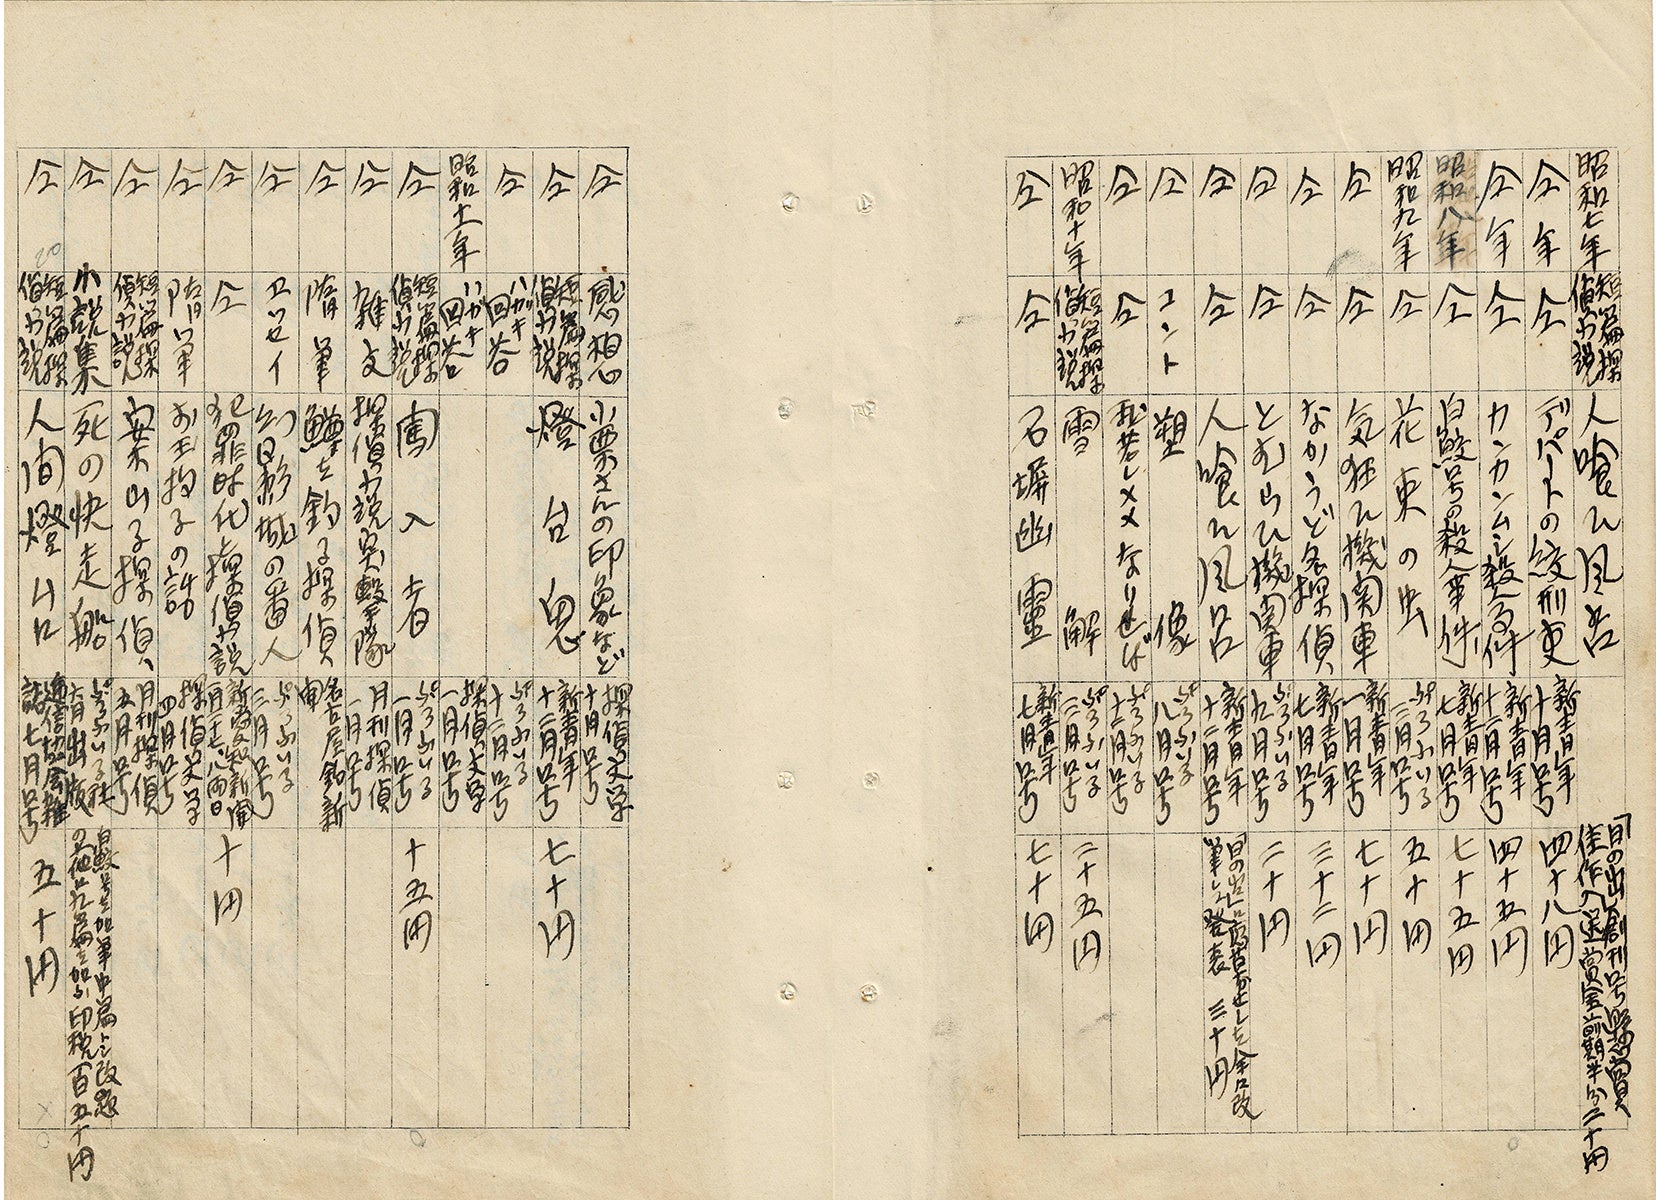 昭和七年 短篇探偵小説 人喰ひ風呂 「日の出」創刊号懸賞佳作入選賞金前期半分二十円
仝年 仝 デパートの絞刑吏 新青年十月号 四十八円
仝年 仝 カンカンムシ殺人事件 新青年十二月号 四十五円
昭和八年 仝 白鮫号の殺人事件 新青年七月号 七十五円
昭和九年 仝 花束の虫 ぷろふいる 五十円
仝 仝 気狂ひ機関車 新青年一月号 七十円
仝 仝 なかうど名探偵 新青年七月号 三十二円
仝 仝 とむらひ機関車 ぷろふいる九月号 二十円
仝 仝 人喰ひ風呂 新青年十二月号 三十円
仝 コント 塑像 ぷろふいる八月号
仝 仝 なりせば ぷろふいる十二月号
昭和十年 短篇探偵小説 雪解 ぷろふいる三月号 二十五円
仝 仝 石塀幽霊 新青年七月号 七十円
仝 感想 小栗さんの印象など 探偵文学十月号
仝 短篇探偵小説 燈台鬼 新青年十二月号 七十円
仝 ハガキ回答 ぷろふいる十二月号
昭和十一年 ハガキ回答 探偵文学一月号
仝 短篇探偵小説 闖入者 ぷろふいる一月号 十五円
仝 雑文 探偵小説突撃隊 月刊探偵一月号
仝 随筆 鱒を釣る探偵 名古屋新聞
仝 エッセイ 幻影城の番人 ぷろふいる三月号
仝 仝 犯罪時代と探偵小説 新愛知新聞 両日 十円
仝 随筆 お玉杓子の話 探偵文学四月号
仝 短篇探偵小説 案山子探偵 月刊探偵五月号
仝 小説集 死の快走船 ぷろふいる社六月出版 白鮫号を加筆中篇トシ改題 その他九篇を加ふ印税百五十円
仝 短篇探偵小説 人間燈台 逓信協会雑誌七月号 五十円